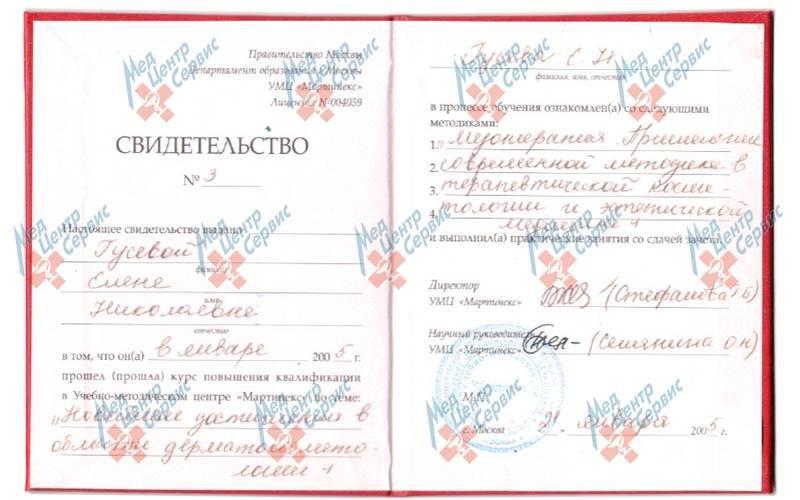 Правительство Москвы
Департамент образования г. Москвы
УМЦ «Мартинекс»
Лицензия N-004059
СВИДЕТЕЛЬСТВО
№ 3
Настоящее свидетельство выдано
Гусевой
фамилия
Елене
имя
Николаевне
отчество
в том, что он(а) в январе 2005 г.
прошел (прошла) курс повышения квалификации
в Учебно-методическом центре «Мартинекс» по теме:
"Новейшие достижения в
области дерматокосмето-
логии"
Гусева Е. Н.
фамилия, имя, отчество
в процессе обучения ознакомлен(а) со следующими
методиками:
1. "Мезотерапия. Применение
2. современной методики в
3. терапевтической косме-
4. тологии и эстетической
медицине"
и выполнил(а) практические занятия со сдачей зачета.
Директор
УМЦ «Мартинекс» (Стефанова
Научный руководитель
УМЦ «Мартинекс» (Семянина ОН)
М.П.
г. Москва 21 января 2005 г.
Мед Центр Сервис